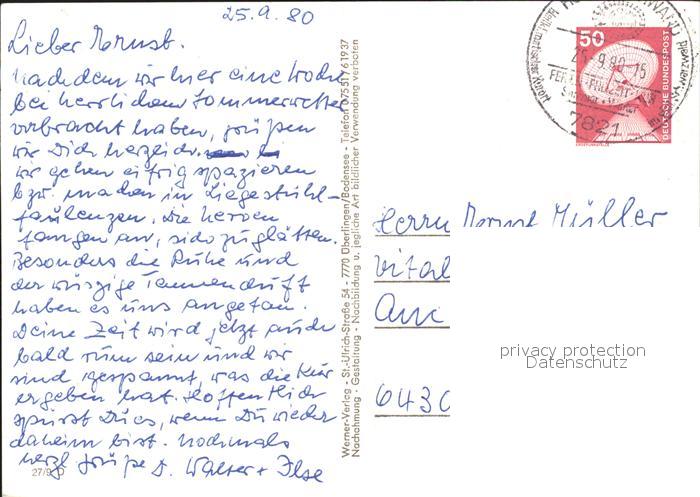 25.9.80
Lieber Ernst.
Nachdem wir hier eine Woche
bei herrlichem Sommerwetter
verbracht haben, grüßen
wir Dich herzlich.
Wir gehen eifrig spazieren
bzw. machen in Liegestuhl-
faulenzen. Die Nerven
fangen an, sich zu glätten.
Besonders die Ruhe und
der würzige Tannenduft
haben es uns angetan.
Deine Zeit wird jetzt auch
bald rum sein und wir
sind gespannt, was die Kur
ergeben hat. Hoffentlich
spürst Du es, wenn Du wieder
daheim bist. Nochmals
herzl. Grüße D. Walter + Ilse
27/9
Werner-Verlag - St.-Ulrich-Straße 54 - 7770 Überlingen/Bodensee - Telefon 07551/61937
Nachahmung - Gestaltung - Nachbildung u. jegliche Art bildlicher Verwendung verboten
50
DEUTSCHE BUNDESPOST
ERDEFUNKSTELLE
25.-9.80-15
7821
Herrn Ernst Müller
Vital
Am
6430
privacy protection
Datenschutz